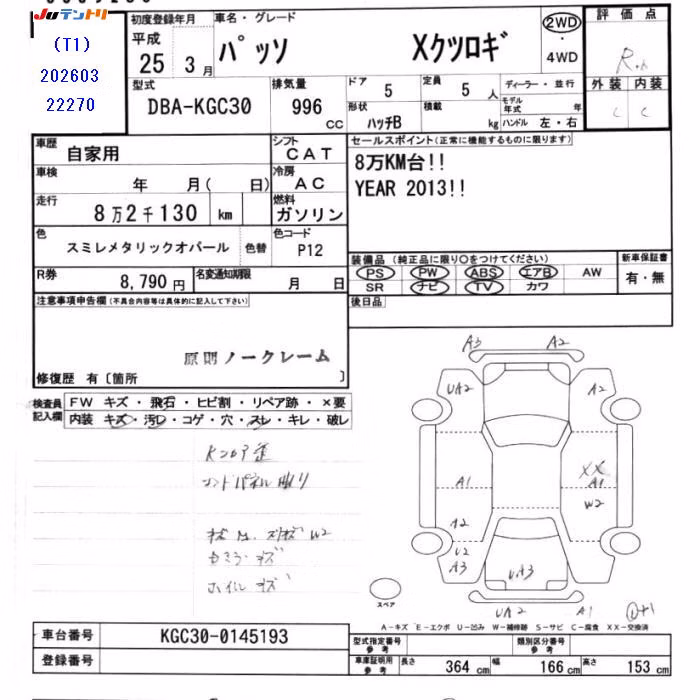 JUテントリ
(T1)
202603
22270
初度登録年月
平成
25 3月
車名・グレード
パッソ Xクツロギ
2WD
・
4WD
評価点
R
外装 内装
C C
型式
DBA-KGC30
排気量
996 CC
ドア
5
定員
5人
形状
ハッチB
積載
kg
ディーラー・並行
モデル年式 年
ハンドル 左・右
車歴
自家用
シフト
CAT
車検
年 月( 日)
冷房
AC
走行
8万2千130 km
燃料
ガソリン
色
スミレメタリックオパール
色替
色コード
P12
R券
8,790円
名変通知期限
月 日
セールスポイント(正常に機能するものに限ります)
8万KM台!!
YEAR 2013!!
装備品(純正品に限り○をつけてください)
PS PW ABS エアB AW
SR ナビ TV カワ
新車保証書
有・無
後日品
注意事項申告欄(不具合内容等は具体的に記入して下さい)
原則ノークレーム
修復歴 有〔箇所 〕
検査員記入欄
FW キズ・飛石・ヒビ割・リペア跡・×要
内装 キズ・汚レ・コゲ・穴・スレ・キレ・破レ
A3 A2
UA2 A2
A1 XX
A1
W2
A2
U2
A3
UA3
UA2 A1
スペア
A-キズ E-エクボ U-凹み W-補修跡 S-サビ C-腐食 XX-交換済
車台番号 KGC30-0145193
登録番号
型式指定番号
参考
類別区分番号
参考
車庫証明用
参考
長さ 364cm 幅 166cm 高さ 153cm